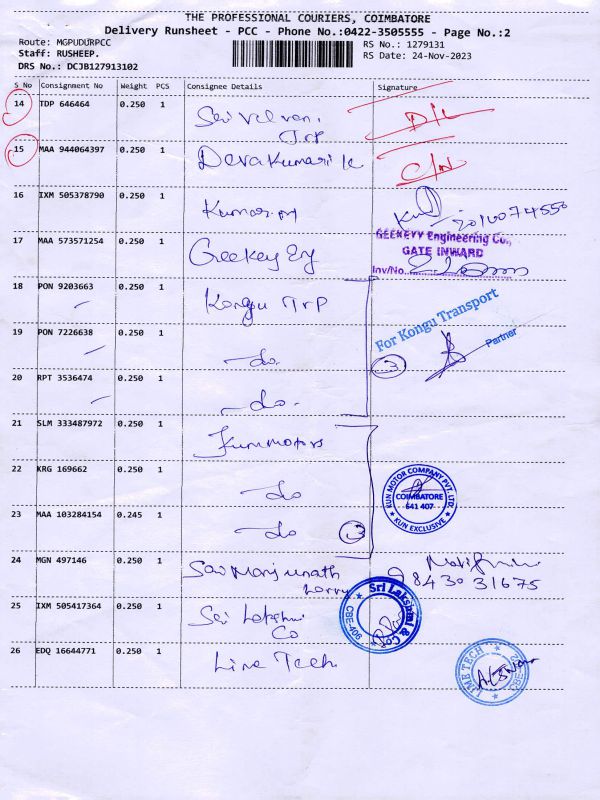 THE PROFESSIONAL COURIERS, COIMBATORE
Delivery Runsheet - PCC - Phone No.:0422-3505555 - Page No.:2
Route: MGPUDURPCC
RS No.: 1279131
Staff: RUSHEEP.
RS Date: 24-Nov-2023
DRS No.: DCJB127913102
S No Consignment No Weight PCS Consignee Details Signature
14 IDP 646464 0.250 1
D/L
15 MAA 944064397 0.250 1 Devakumari k
C/N
16 IXM 505378790 0.250 1 Kumar
17 MAA 573571254 0.250 1 Geekey Eng
GEEKEYY Engineering Co.,
GATE INWARD
Inv/No.
18 PON 9203663 0.250 1 Kongu TrP
For Kongu Transport
Partner
19 PON 7226638 0.250 1 -do.
3
20 RPT 3536474 0.250 1 -do.
21 SLM 333487972 0.250 1 Kun motors
22 KRG 169662 0.250 1 -do
KUN MOTOR COMPANY PVT. LTD.
COIMBATORE
641 407
KUN EXCLUSIVE
23 MAA 103284154 0.245 1 -do
3
24 MGN 497146 0.250 1 Sav Manjunath
Lorry
98430 31675
25 IXM 505417364 0.250 1 Sri Lakshmi
Co
Sri Lakshmi & Co
CBE-406
26 EDQ 16644771 0.250 1 Lime Tech
LIME TECH